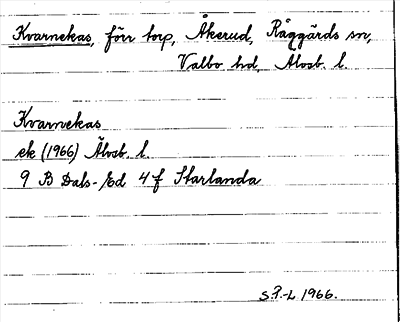 Kvarnekas, förr torp, Åkerud, Råggärds sn,
Valbo hd, Älvsb. l.
Kvarnekas
ek (1966) Älvsb. l.
9 B Dals-Ed 4 f Starlanda
S.P.-L 1966.